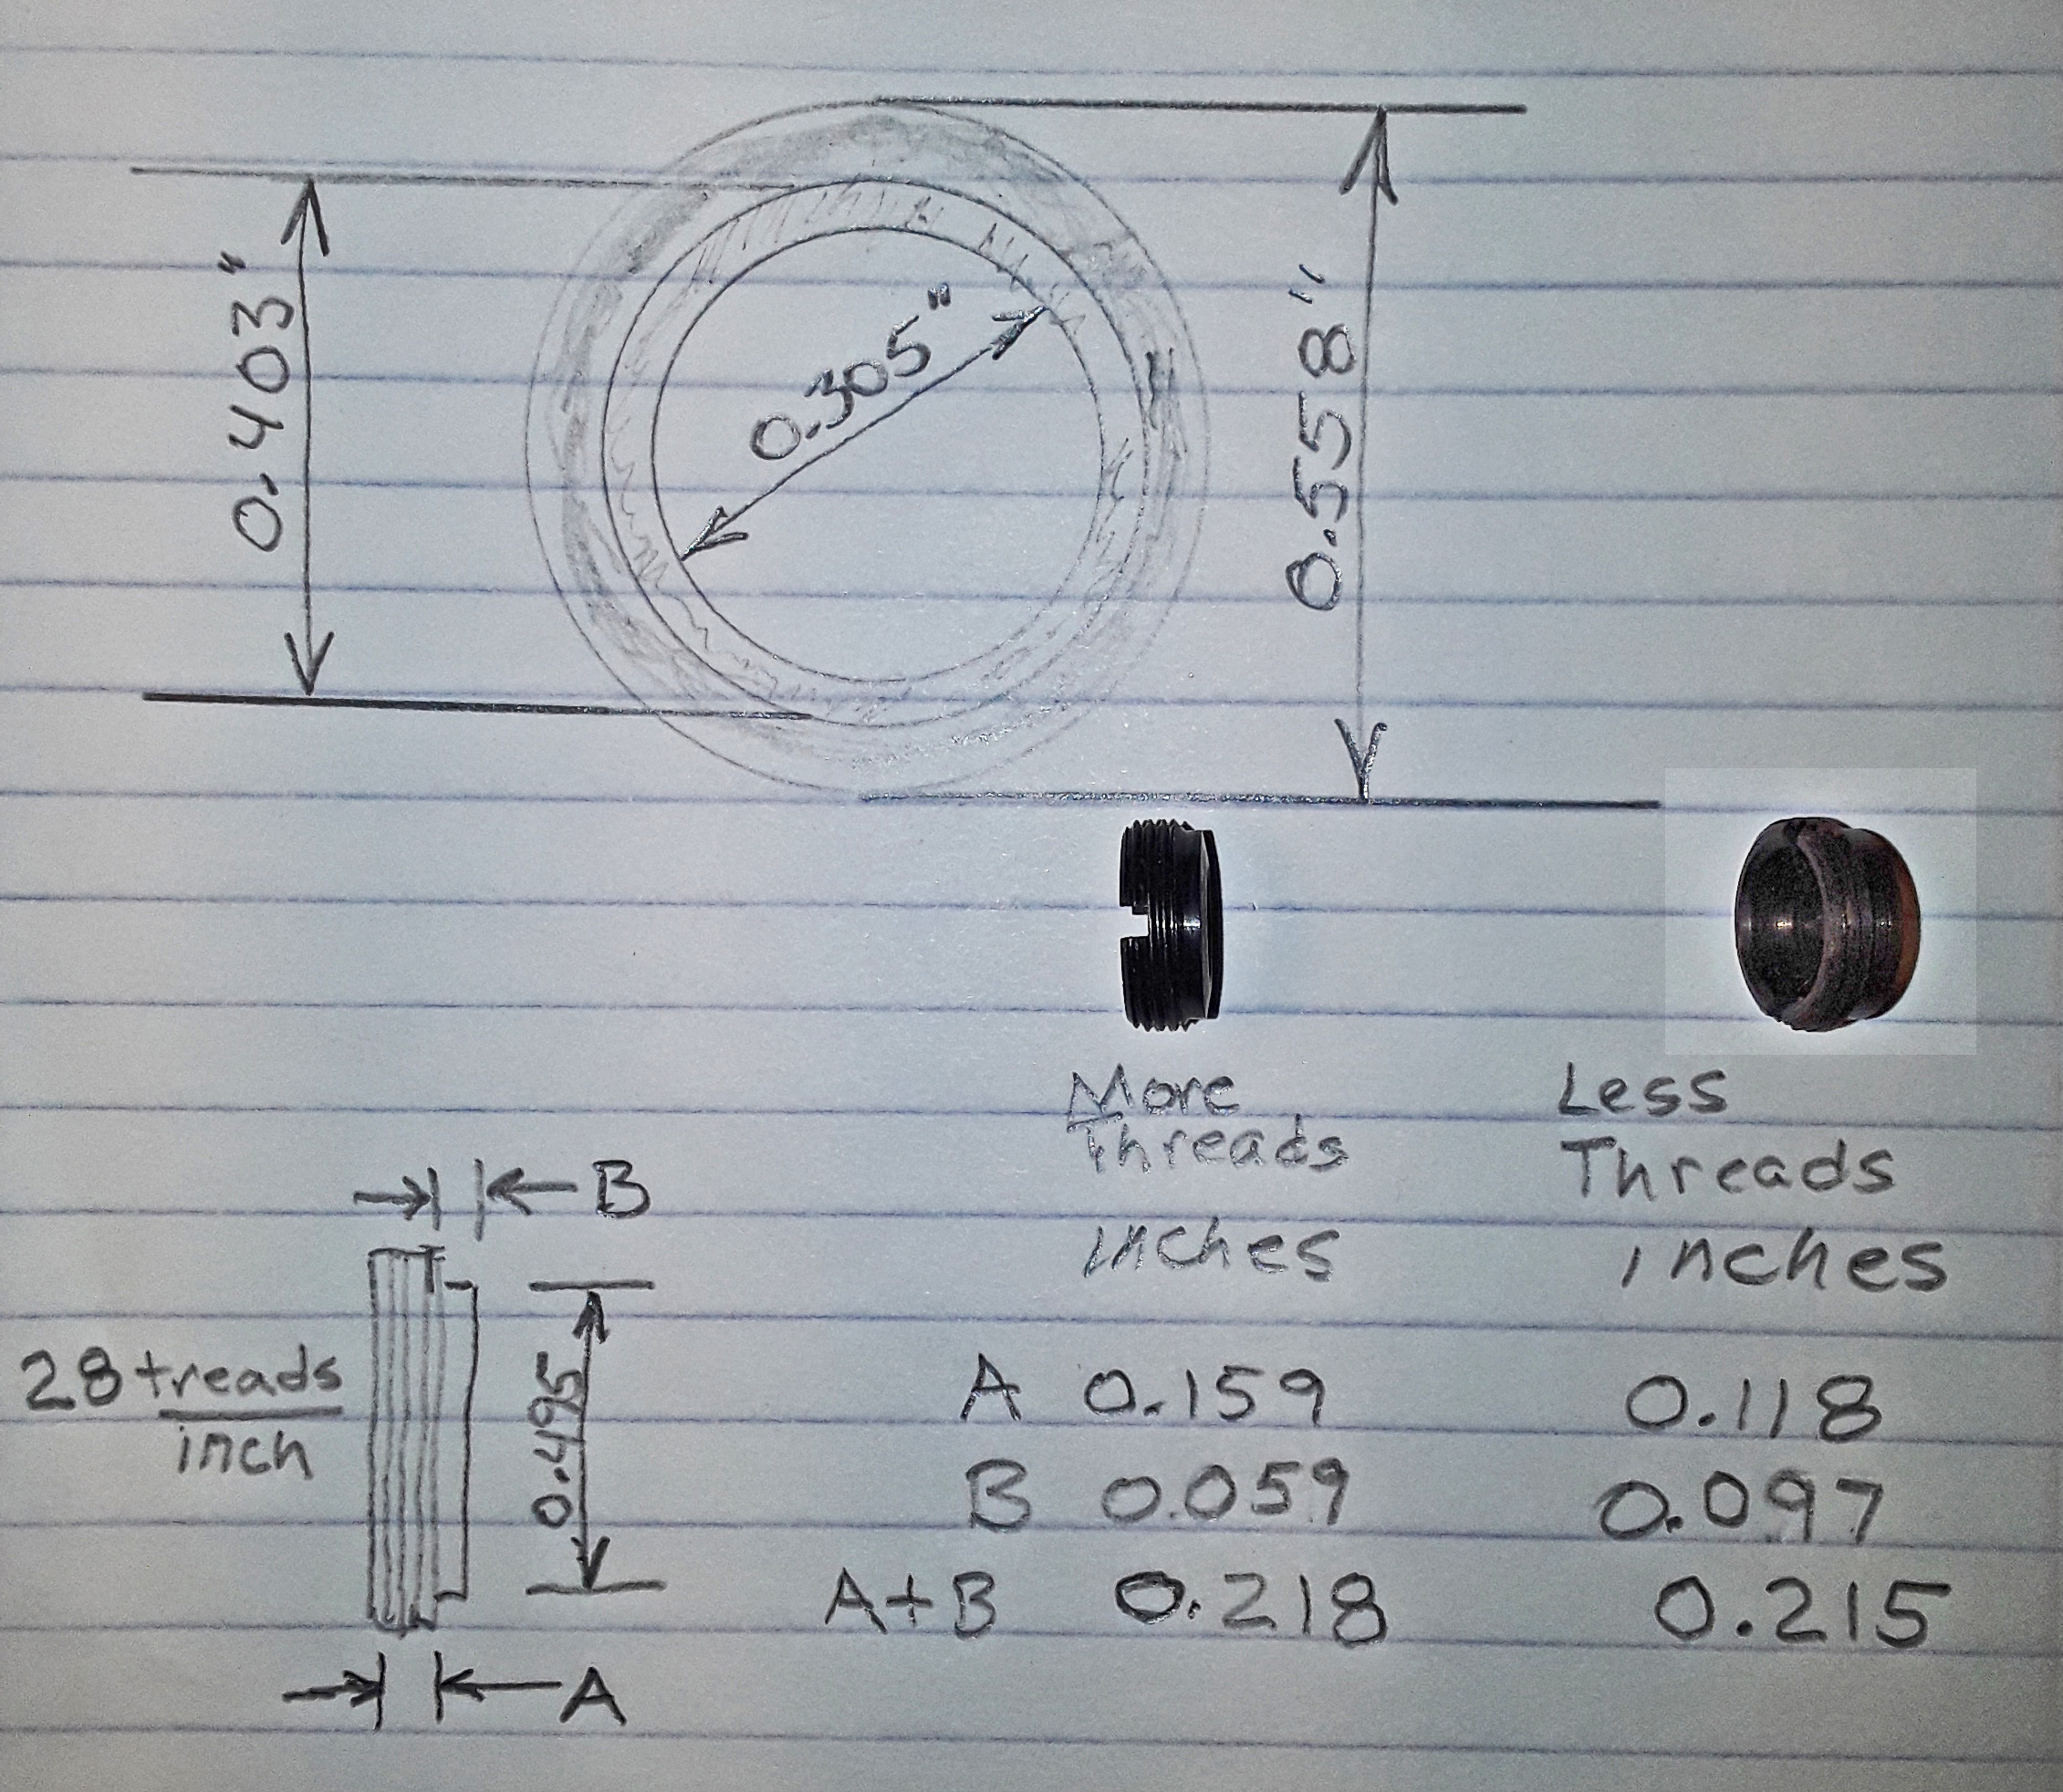 0.403"
0.305"
0.558"
More
Threads
inches
Less
Threads
inches
B
28 treads
inch
0.495
A
A 0.159 0.118
B 0.059 0.097
A+B 0.218 0.215